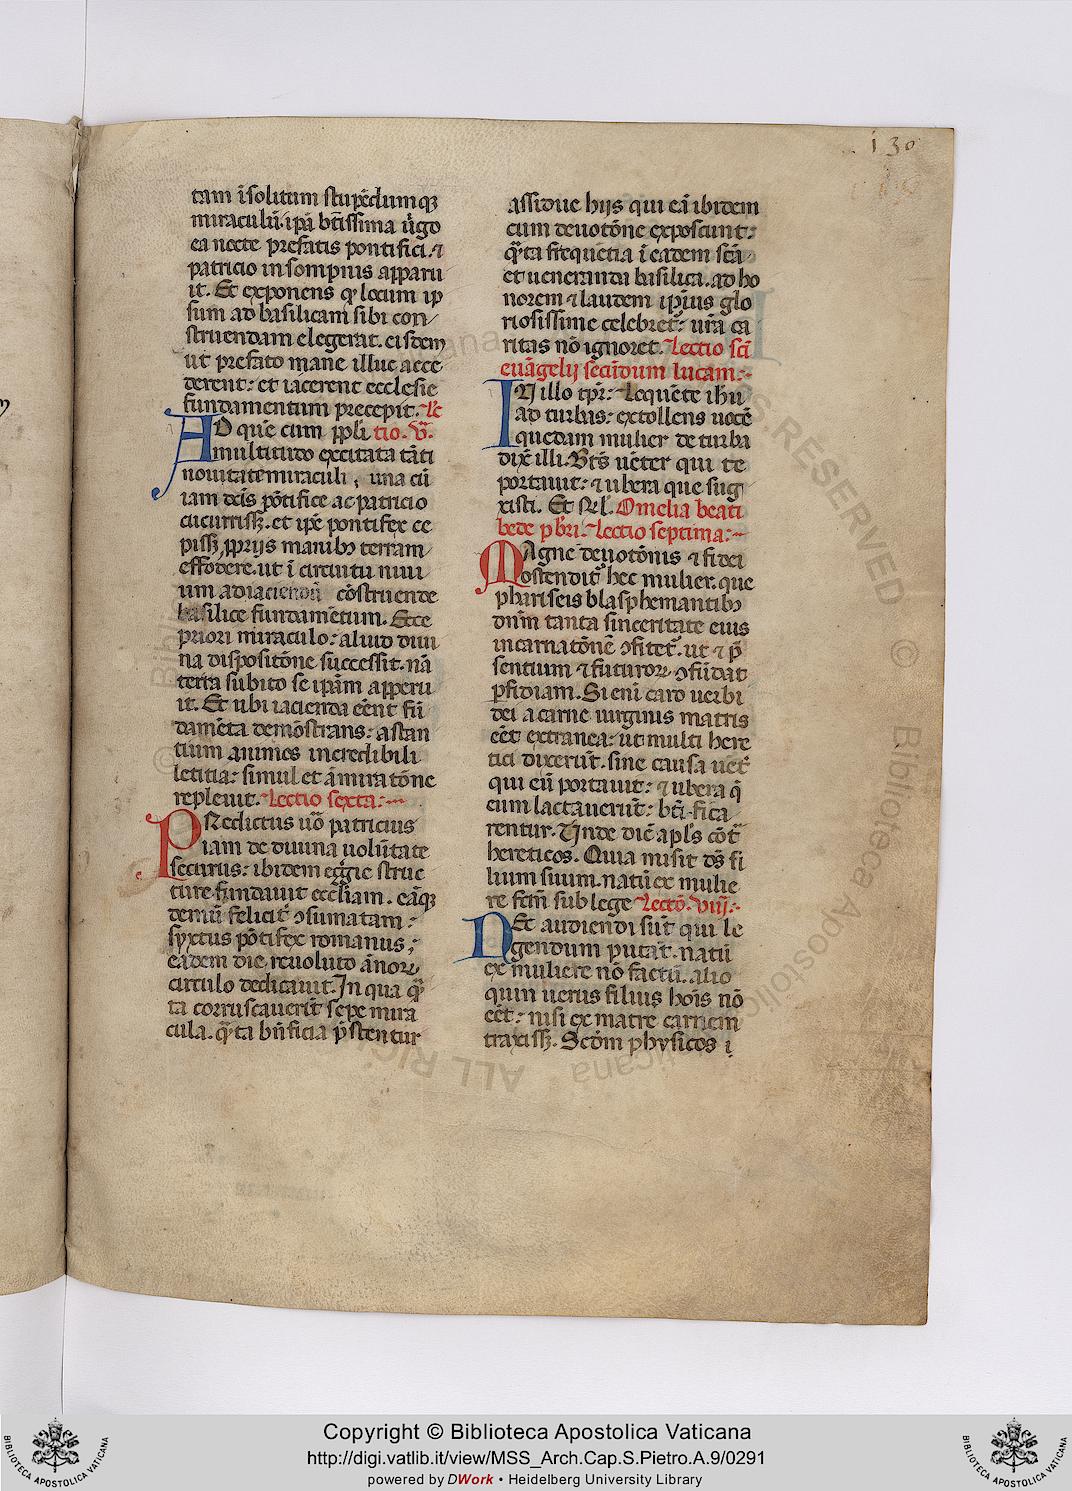 130
tam ĩsolitum stupẽdumqꝫ
miraculũ. ip̃a bt̃issima ṽgo
ea nocte prefatis pontifici. ⁊
patricio in sompniis apparu
it. Et exponens ꝙ locum ip
sum ad basilicam sibi con
struendam elegerat. eisdem
ut prefato mane illuc acce
derent: et iacerent ecclesie
fundamentum precepit. Lc̃
AD que cum pp̃li tio. v̄.
multitudo excitata tãti
nouitate miraculi, una cũ
iam dc̃is põtifice ac patricio
cucurrissꝫ. et ip̃e pontifex ce
pissꝫ ꝓpriis manibꝫ terram
effodere. ut ĩ circuitu niui
um adiaciendũ cõstruende
basilice fundamẽtum. Ecce
priori miraculo: aliud diui
na dispositõne successit. nã
terra subito se ipãm apperu
it. Et ubi iacienda eẽnt fũ
damẽta demõstrans: astan
tium animos incredibili
letitia: simul et ãmiratõne
repleuit. Lectio sexta:
PRedictus uõ patricius
iam de diuina uolũtate
securus: ibidem eg̃gie struc
ture fundauit eccl̃iam. eãqꝫ
demũ felicit̃ ↄsumatam:
syxtus põtifex romanus;
eãdem die reuoluto ãnoꝝ
circulo dedicauit. In qua qͣ̃
ta corruscauerĩt sepe mira
cula. qͣ̃ta bñficia p̃stentur
assidue hiis qui eã ibidem
cum deuotõne exposcunt:
qͣ̃ta frequẽtia ĩ eadem sc̃ã
et ueneranda basilica. ad ho
norem ⁊ laudem ip̃ius glo
riosissime celebret̃: ur̃a ca
ritas nõ ignoret. Lectio sc̃i
euãgelij secũdum lucam:
IN illo tp̃r: Loquẽte ih̃u
ad turbas: extollens uocẽ
quedam mulier de turba
dix̃ illi. Bt̃s uẽter qui te
portauit: ⁊ ubera que sug
xisti. Et rel̃. Omelia beati
bede pbr̃i. Lectio septima:
MAgne deuotõnis ⁊ fidei
ostendit̃ hec mulier. que
phariseis blasphemantibꝫ
dñm tanta sinceritate eius
incarnatõnẽ ↄfitet̃. ut ⁊ p̃
sentium ⁊ futuroꝝ ↄfũdat
ꝑfidiam. Si enĩ caro uerbi
dei a carne uirginis matris
eẽt extranea: ut multi here
tici dixerũt. sine causa uẽt̃
qui eũ portauit: ⁊ ubera q̃
eum lactauerũt: bt̃i fica
rentur. Unde dic̃ apl̃s cõt̃
hereticos. Quia misit dš fi
lium suum. natũ ex mulie
re fc̃m sub lege Lectõ. viij.
NEc audiendi sũt qui le
gendum putãt. natũ
ex muliere nõ factũ. alio
quin uerus filius hoĩs nõ
eẽt: nisi ex matre carnem
traxissꝫ. Scdm physicos i
Copyright © Biblioteca Apostolica Vaticana
http://digi.vatlib.it/view/MSS_Arch.Cap.S.Pietro.A.9/0291
powered by DWork • Heidelberg University Library